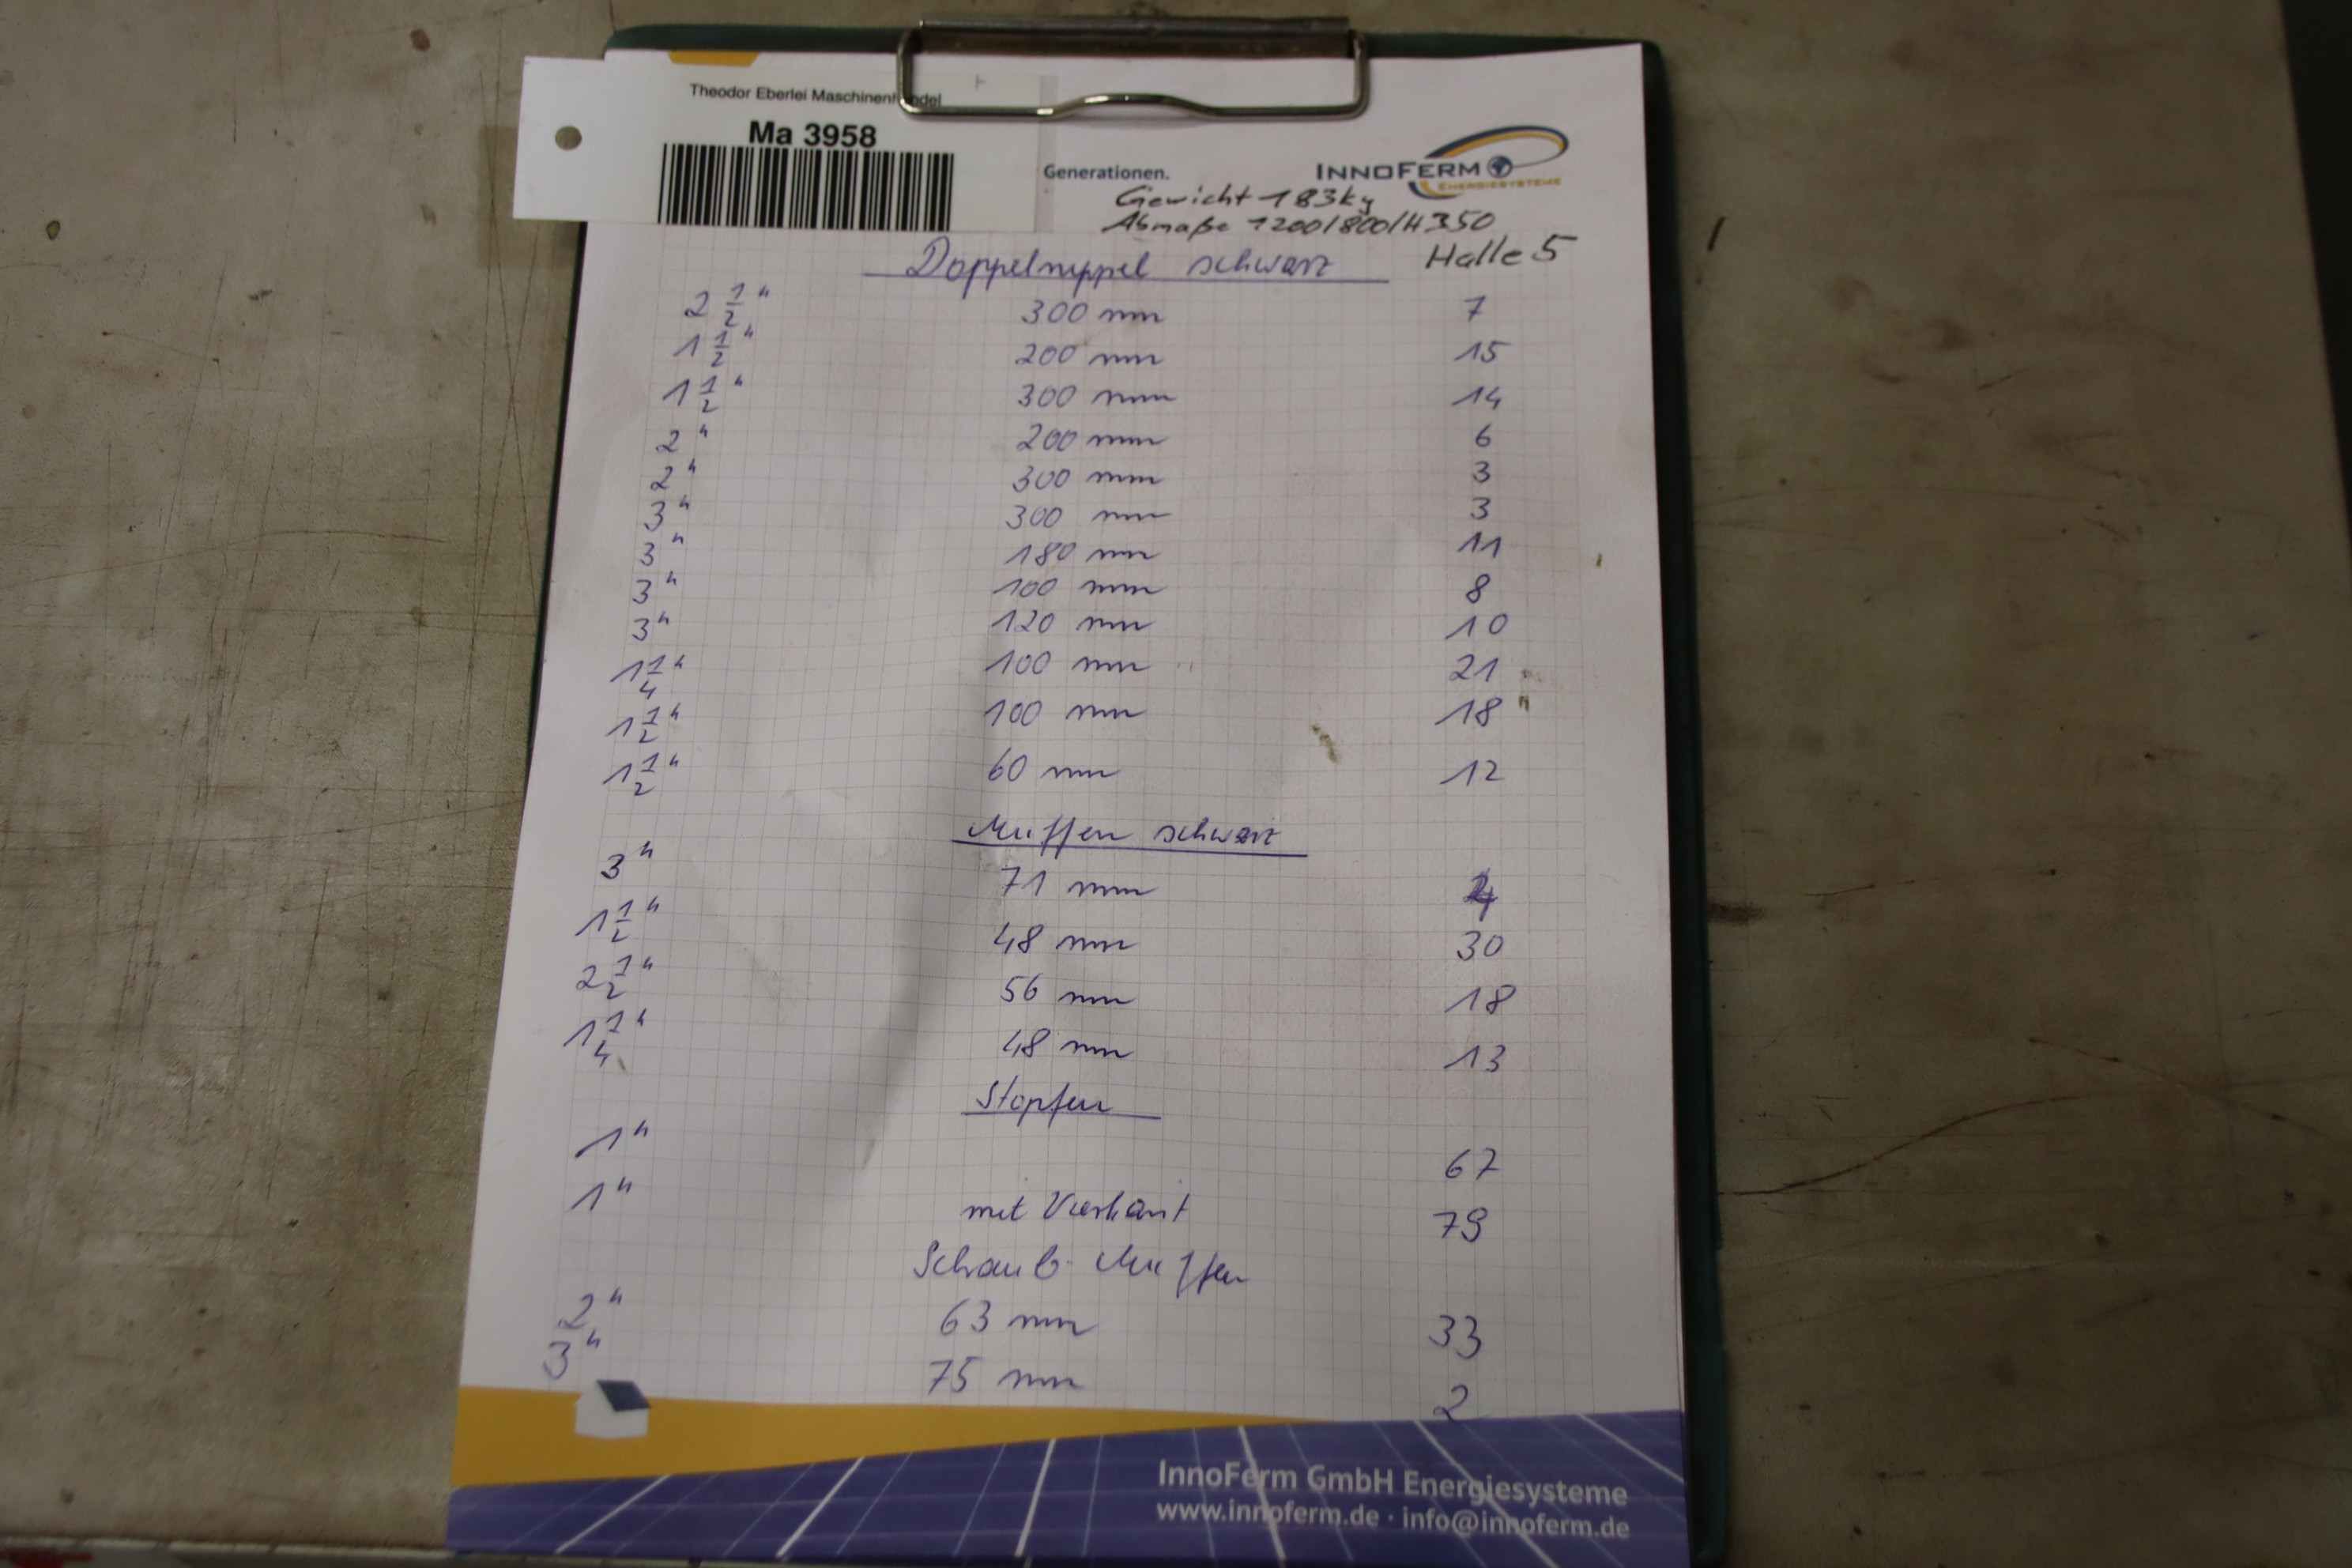 Theodor Eberlei Maschinenhandel
Ma 3958
Generationen.
INNOFERM
ENERGIESYSTEME
Gewicht 183kg
Abmaße 1200/800/H350
Doppelnippel schwarz Halle 5
2 1/2" 300 mm 7
1 1/2" 200 mm 15
1 1/2" 300 mm 14
2" 200 mm 6
2" 300 mm 3
3" 300 mm 3
3" 180 mm 11
3" 100 mm 8
3" 120 mm 10
1 1/4" 100 mm 21
1 1/2" 100 mm 18
1 1/2" 60 mm 12
Muffen schwarz
3" 71 mm
1 1/2" 48 mm 30
2 1/2" 56 mm 18
1 1/4" 48 mm 13
Stopfen
1" 67
1" mit Vierkant 79
Schraub-Muffen
2" 63 mm 33
3" 75 mm 2
InnoFerm GmbH Energiesysteme
www.innoferm.de · info@innoferm.de